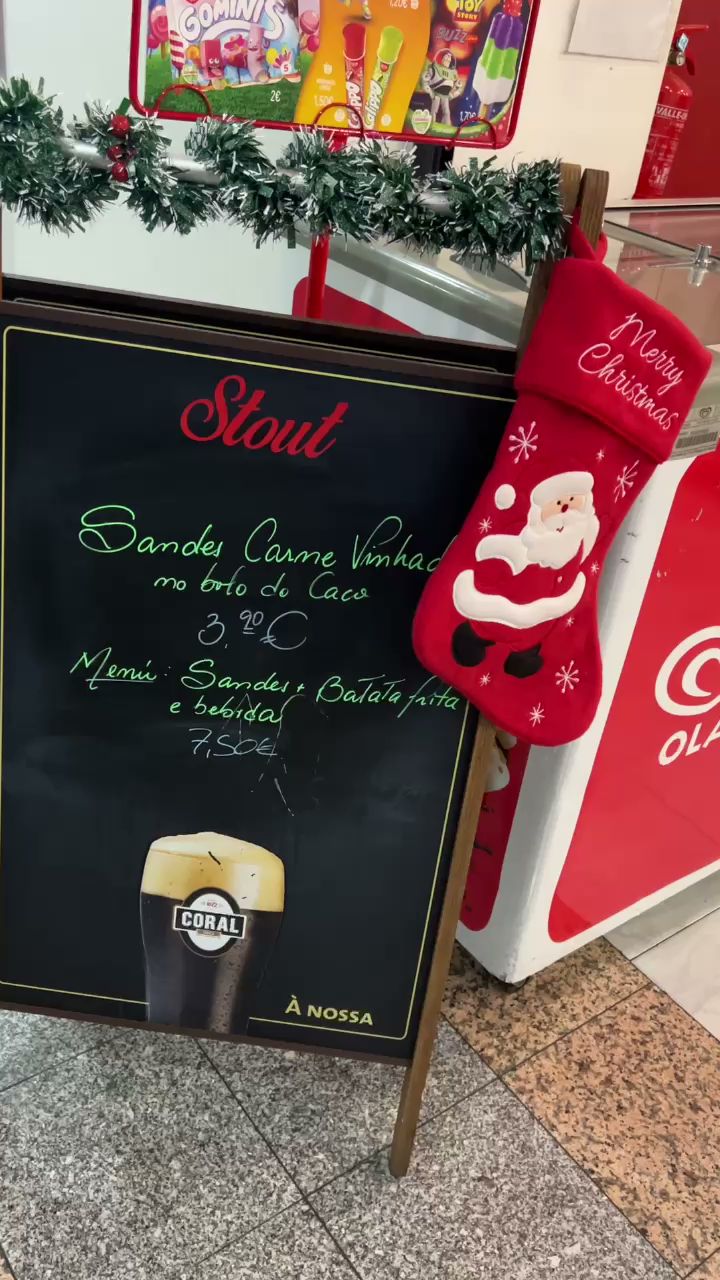 GOMINIS
2€
1,20€
1,50€
Calippo
TOY STORY
BUZZ
1,70€
Merry
Christmas
Stout
Sandes Carne Vinhad
no bolo do Caco
3,90€
Menú: Sandes + Batata frita
e bebida
7,50€
CORAL
À NOSSA
OLA